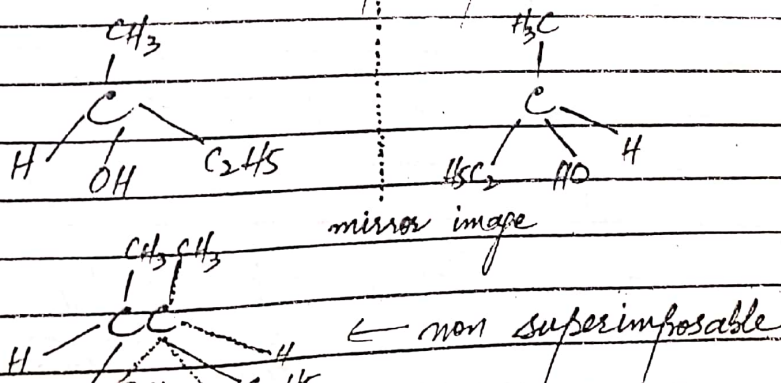 CH3 H3C
C C
H OH C2H5 H5C2 HO H
mirror image
CH3 CH3
H C C H ← non superimposable